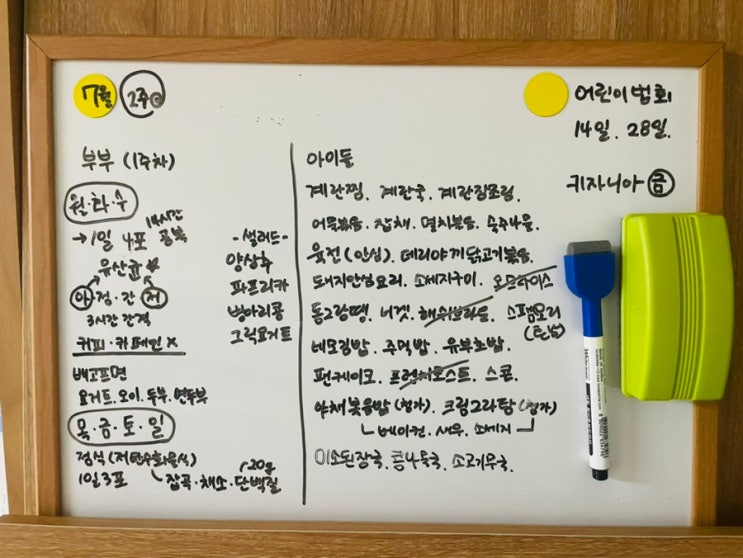 7월 2주
어린이법회
14일. 28일.
키자니아 금
부부 (1주차)
월·화·수
→ 1일 4포 14시간 공복
유산균
아·점·간·저
3시간 간격
커피·카페인 X
배고프면
요거트. 오이. 두부. 연두부
목·금·토·일
정식 (저탄수화물식)
1일 3포
잡곡·채소·단백질
20g
-샐러드-
양상추
파프리카
병아리콩
그릭요거트
아이들
계란찜. 계란국. 계란장조림.
어묵볶음. 잡채. 멸치볶음. 숙주나물.
육전 (안심). 데리야끼 닭고기볶음.
돼지안심요리. 소세지구이. 오므라이스
동그랑땡. 너겟. 해쉬브라운. 스팸요리
네모김밥. 주먹밥. 유부초밥.
팬케이크. 프렌치토스트. 스콘.
야채볶음밥 (첨가). 크림그라탕 (첨가)
베이컨. 새우. 소세지
미소된장국. 콩나물국. 소고기무국.